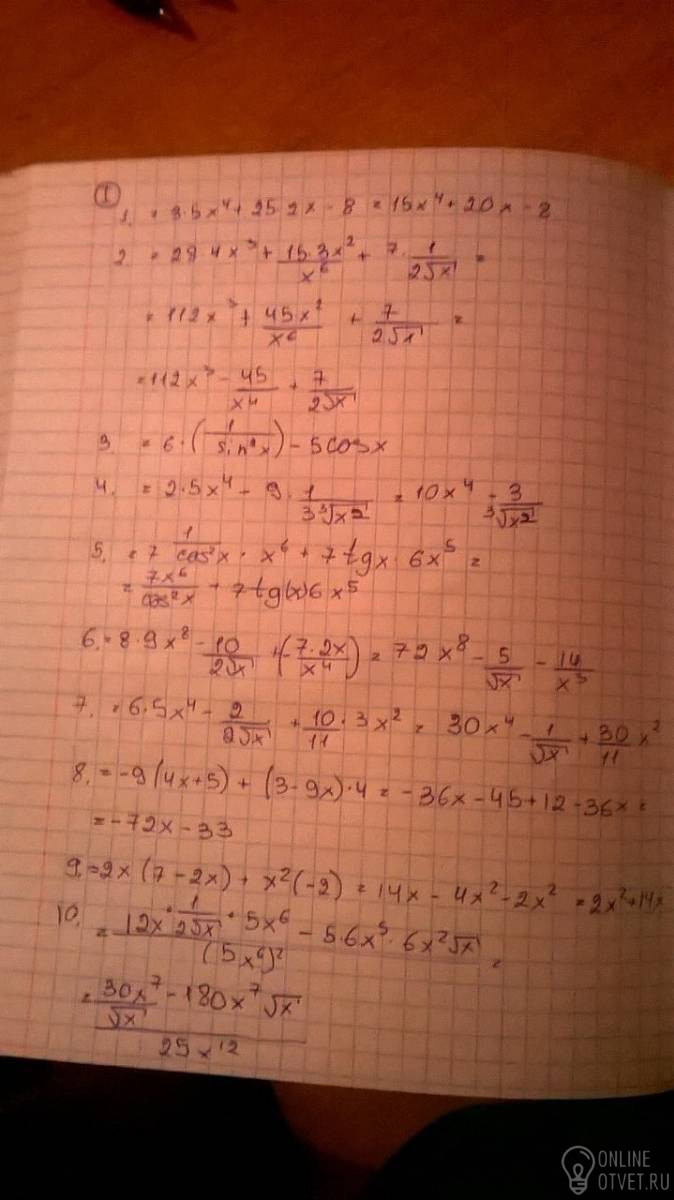 I
1. = 3·5x⁴ + 25 2x - 8 = 15x⁴ + 20x - 8
2. = 28 4x³ + 15·3x²/x⁶ + 7·1/(2√x) =
= 112x³ + 45x²/x⁶ + 7/(2√x) =
= 112x³ - 45/x⁴ + 7/(2√x)
3. = 6·(1/sin²x) - 5cosx
4. = 2·5x⁴ - 9·1/(3∛x²) = 10x⁴ - 3/∛x²
5. = 7 1/cos²x · x⁶ + 7tgx · 6x⁵ =
= 7x⁶/cos²x + 7tg(x)6x⁵
6. = 8·9x⁸ - 10/(2√x) + (-7·2x/x⁴) = 72x⁸ - 5/√x - 14/x³
7. = 6·5x⁴ - 2/(2√x) + 10/11·3x² = 30x⁴ - 1/√x + 30/11 x²
8. = -9(4x+5) + (3-9x)·4 = -36x - 45 + 12 - 36x =
= -72x - 33
9. = 2x(7-2x) + x²(-2) = 14x - 4x² - 2x² = 2x² + 14x
10. = (12x · 1/(2√x) · 5x⁶ - 5·6x⁵ · 6x²√x)/(5x⁶)² =
= (30x⁷/√x - 180x⁷√x)/25x¹²
ONLINE
OTVET.RU